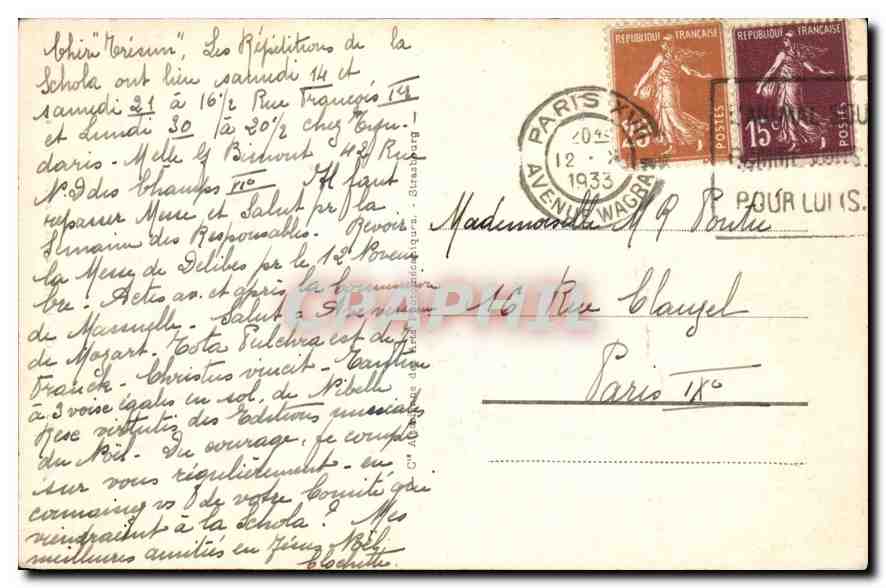 Les Répétitions de la
Schola ont lieu samedi 14 et
samedi 21 à 16½ Rue François Ier
et Lundi 30 à 20½ chez
Melle G Bimont 42 Rue
N.D des Champs VIo Il faut
repasser Messe et Salut pr la
Semaine des Responsables. Revoir
la Messe de Delibes pr le 12 Novem
bre - Actes av. et après la Communion
de - Salut
de Mozart. Tota Pulchra est de
Franck - Christus vincit - Tantum
à 3 voix égales en sol, de Nibelle
des Editions musicales
du Nôël. Du courage, je compte
sur vous régulièrement - en
de votre Comité qui
viendraient à la Schola? Mes
meilleures amitiés en Jésus Nôël
Cie Alsacienne des Arts Photomécaniques. - Strasbourg
REPUBLIQUE FRANÇAISE
POSTES
REPUBLIQUE FRANÇAISE
15c
POSTES
PARIS XVII
12
1933
AVENUE WAGRAM
POUR LUI (S.
Mademoiselle M R
16 Rue Clauzel
Paris IXo
CPAPHIL